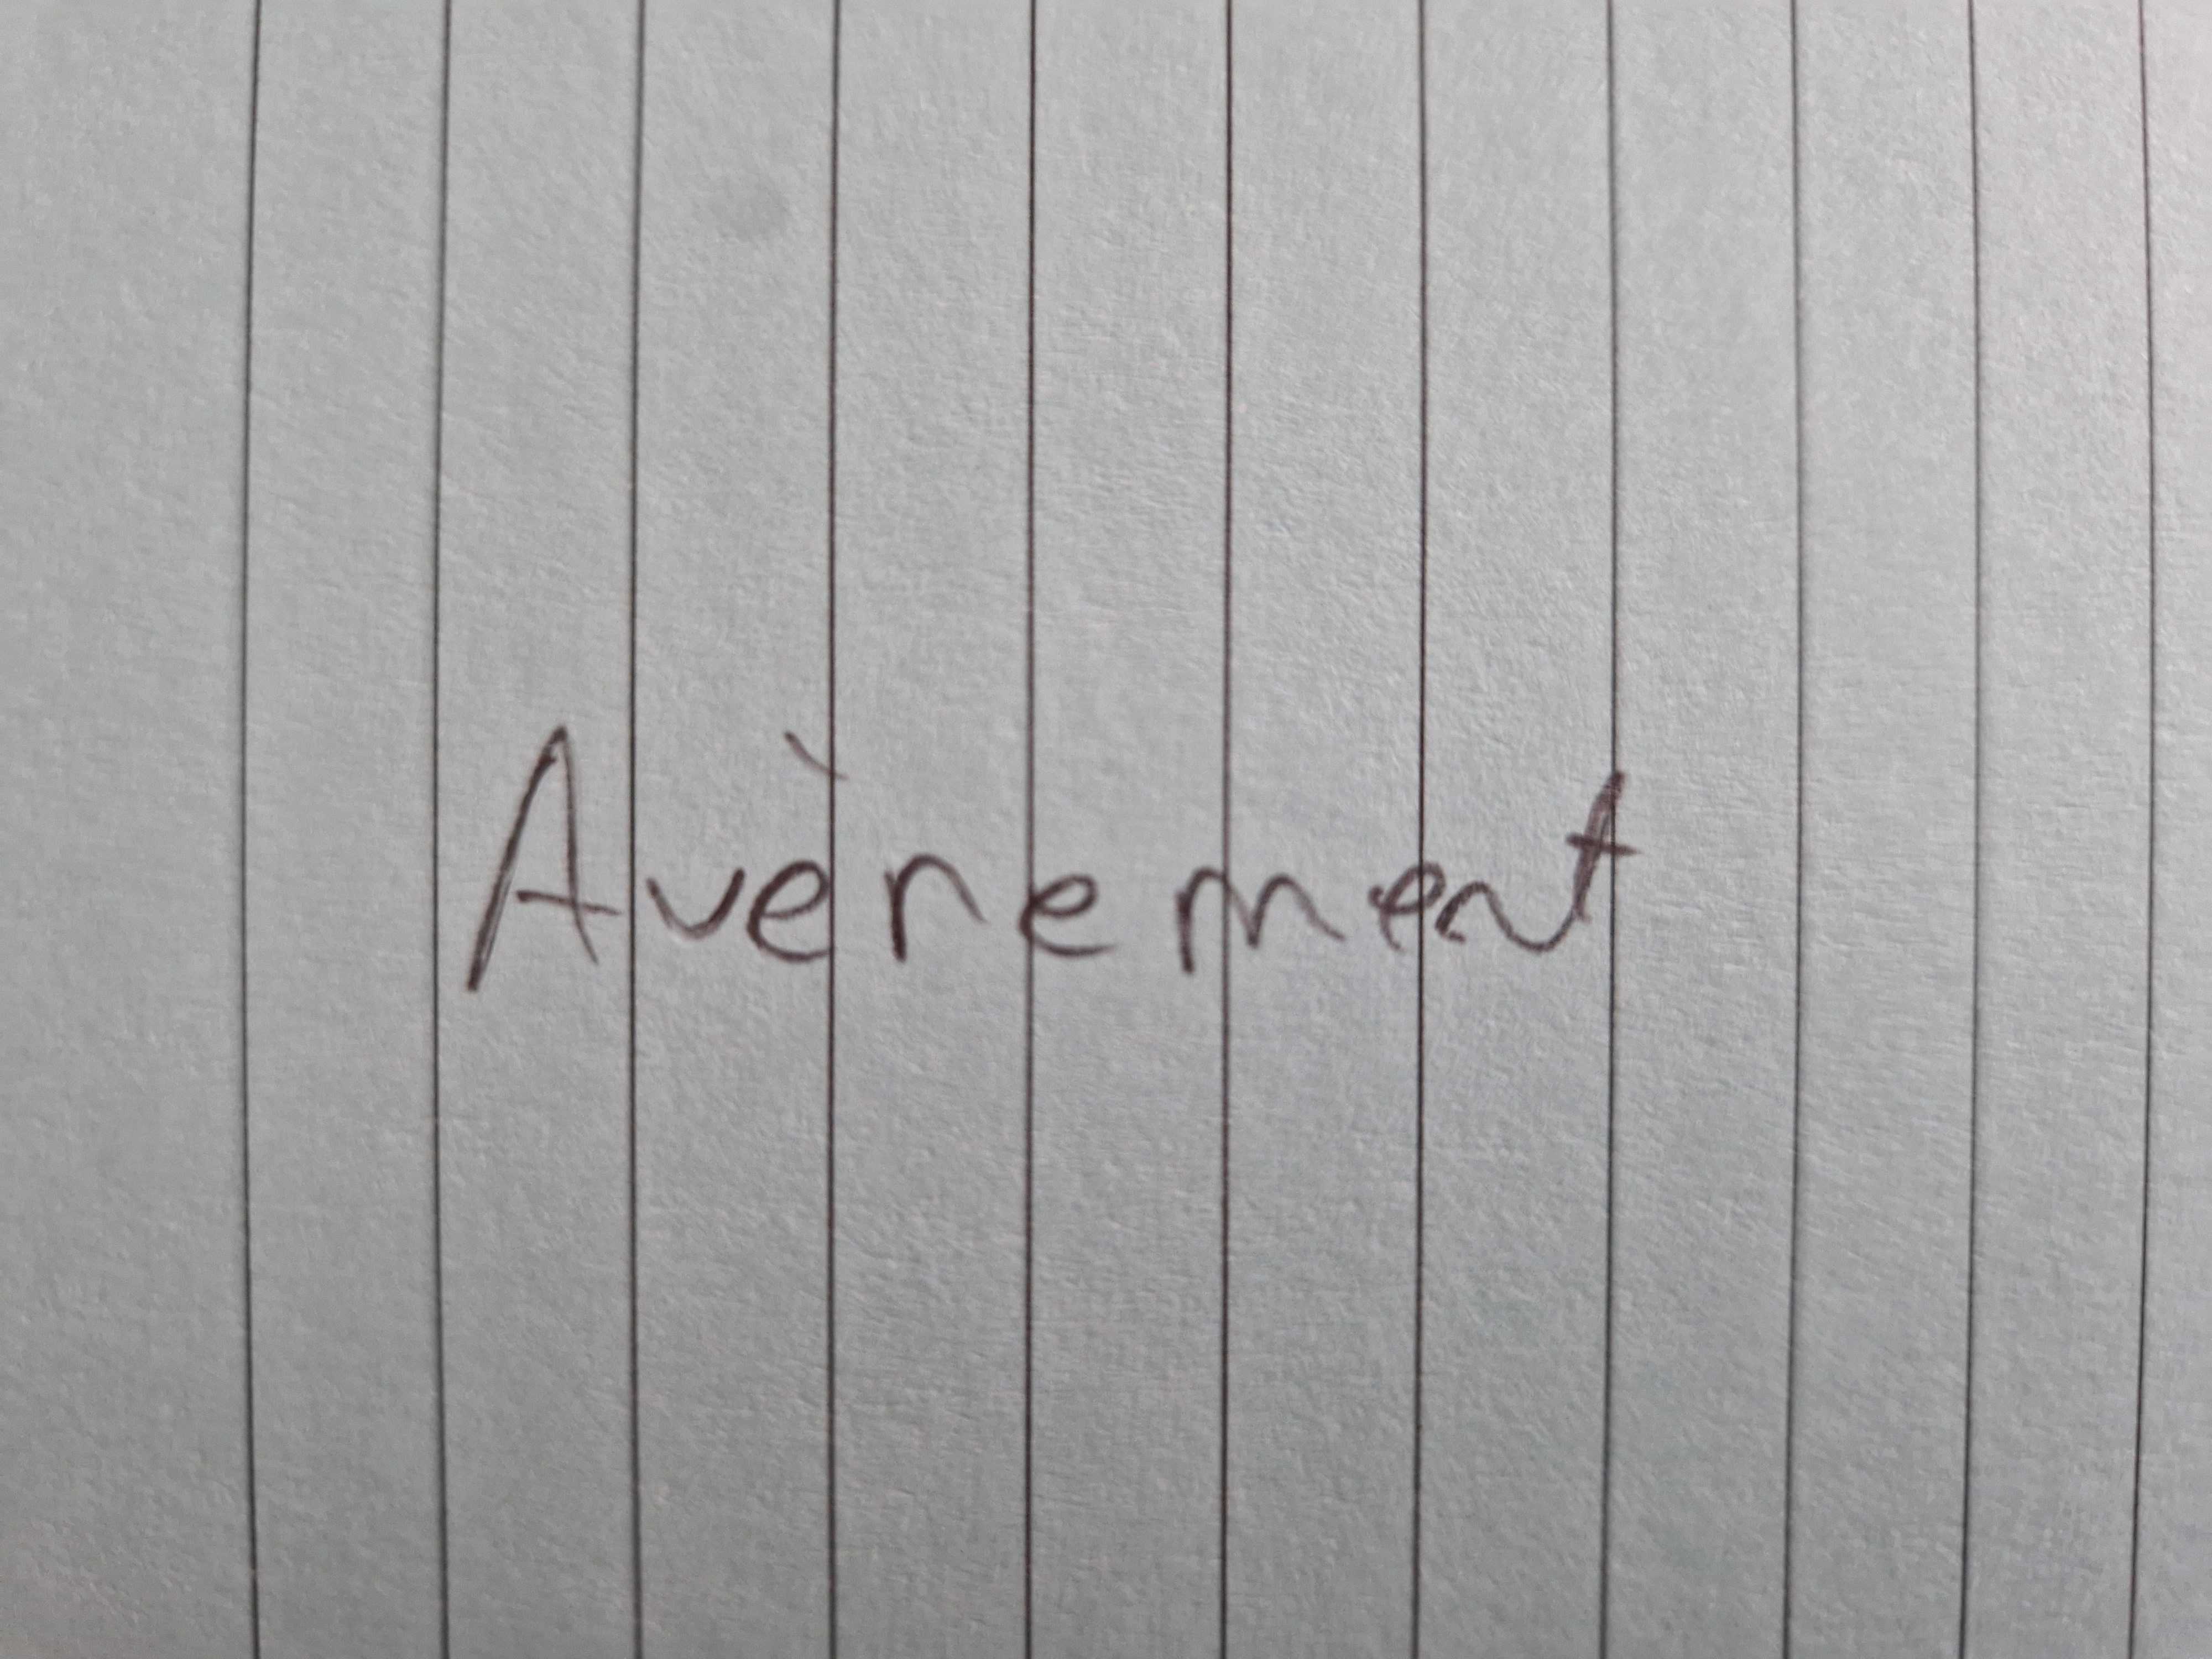 Avènement